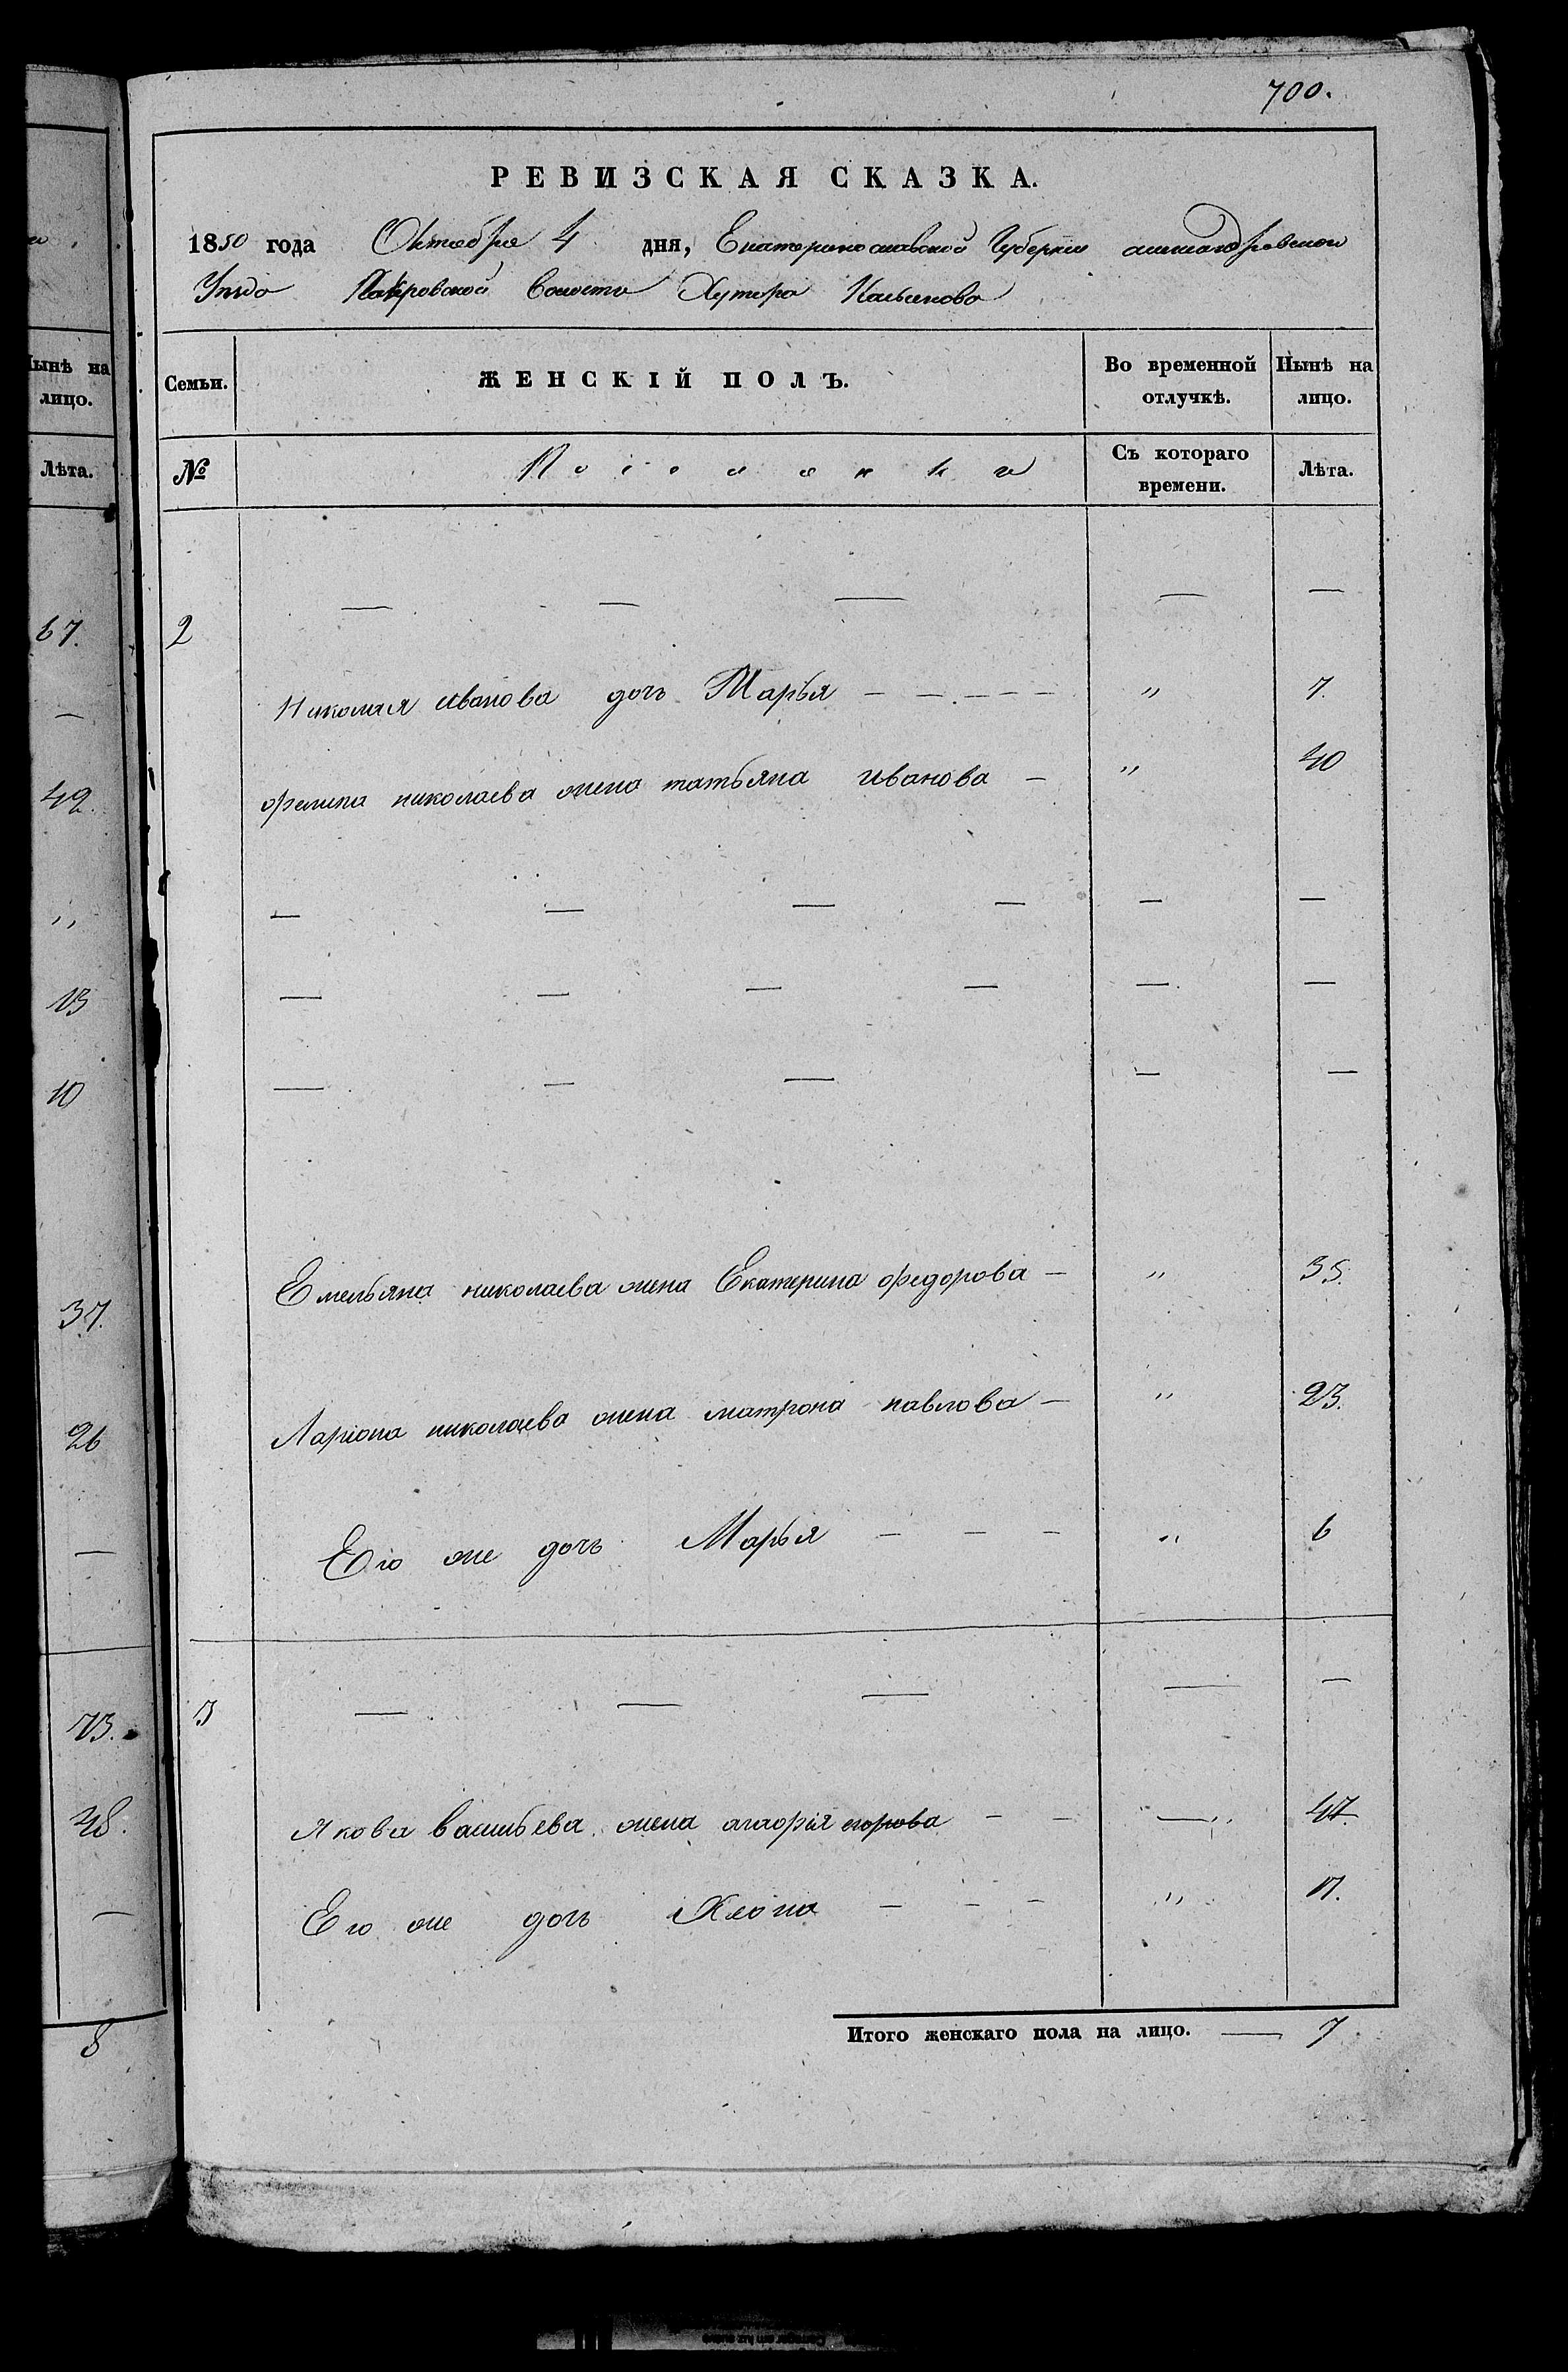 700.
РЕВИЗСКАЯ СКАЗКА.
1850 года Октября 4 дня, Екатеринославской Губернии александровского
Уезда Покровской Волости Хутора
Нынѣ на
лицо.
Лѣта.
Семьи.
ЖЕНСКІЙ ПОЛЪ.
Во временной
отлучкѣ.
Нынѣ на
лицо.
№
Поселянки
Съ котораго
времени.
Лѣта.
— — — — —
67. 2
Николая иванова дочь Марья — — — — — " 7.
—
филипа николаева жена татьяна иванова — " 40
42.
— — — — — —
"
— — — — — —
13
— — — — —
10
Емельяна николаева жена Екатерина федорова — " 35.
37.
Ларіона николаева жена матрона павлова — " 23.
26
Его же дочь Марья — — — " 6
—
3 — — — — —
73.
Якова васильева жена агафія егорова — — — " 47.
48.
Его же дочь — — — " 17.
—
Итого женскаго пола на лицо. — 7
8